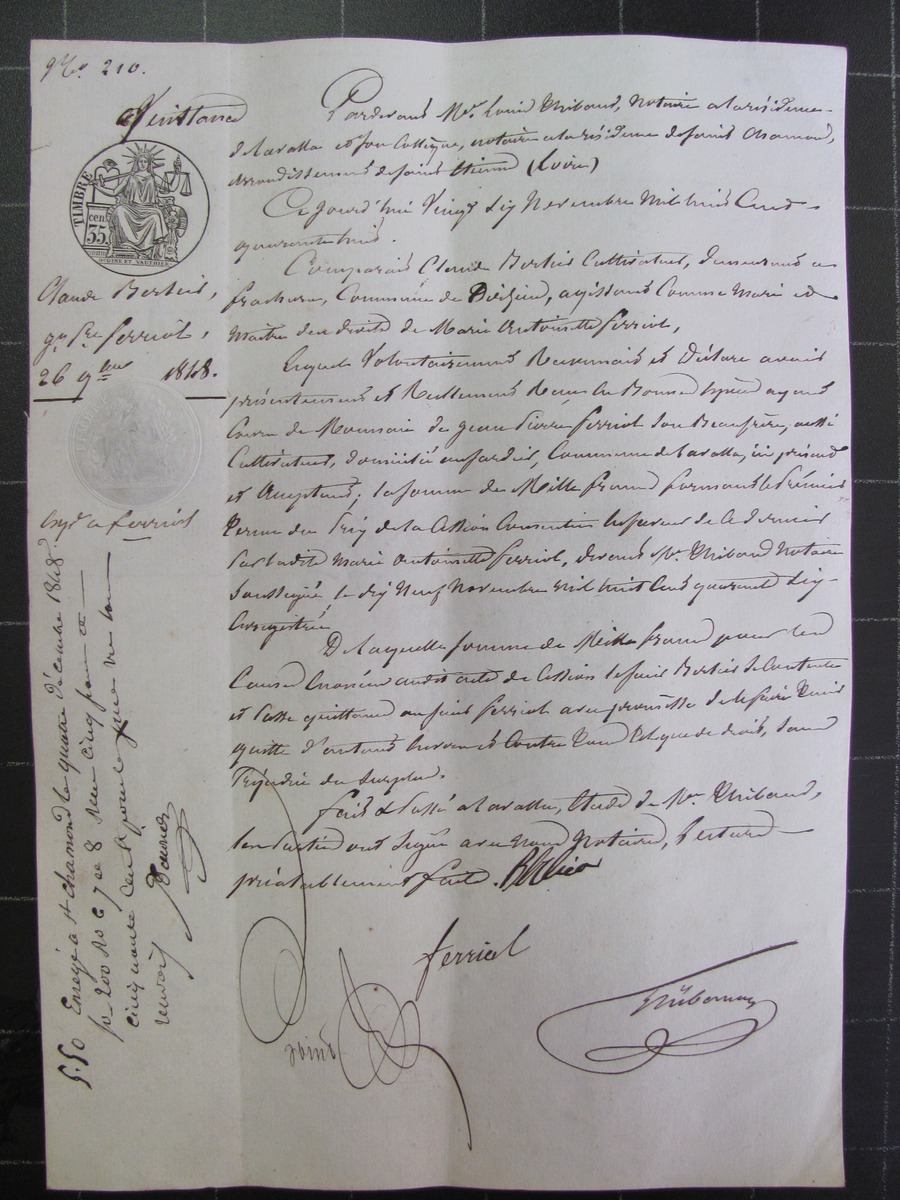 Nº 210.
Quittance
TIMBRE
35
cen
Claude Bertier,
Jn Pre Ferriol,
26 9bre 1848.
Expn a Ferriol
Pardevant Me Louis Thibaud, Notaire a la résidence
de Lavalla et son Collègue, notaire a la résidence de Saint Chamond,
arrondissement de Saint Etienne (Loire)
Ce jourd'hui Vingt Six Novembre Mil huit Cent
quarante huit.
Comparait Claude Bertier Cultivateur, demeurant a
Commune de agissant Comme Mari et
Maitre des droits de Marie Antoinette Ferriol,
Lequel Volontairement Reconnait et Déclare avoir
présentement et Réellement Reçu en Bonnes Espèces ayant
Cours de Monnaie de Jean Pierre Ferriol Son Beaufrère, aussi
Cultivateur, domicilié au Commune de Lavalla, ici présent
et Acceptant; la somme de Mille francs formant le Prémier
terme du Prix de la Cession Consentie en faveur de ce dernier
Par ladite Marie Antoinette Ferriol, devant Me Thibaud Notaire
Soussigné le dix Neuf Novembre mil huit Cent quarante Six
Enregistrée
De laquelle somme de Mille francs pour les
Causes Enoncées audit acte de Cession ledit Bertier Se Contente
et Passe quittance audit Ferriol avec promesse de le faire tenir
quitte d'autant Envers et Contre tous Ce que de droit, Sans
Préjudice du Surplus.
Fait & Passé a Lavalla, Etude de Me Thibaud,
les Parties ont Signé avec nous Notaires, Lecture
préalablement faite.
Ferriol
Enregé a St chamond le quatre décembre 1848
fo 200 Ro C 7 et 8 Reçu cinq francs
cinquante centimes
5.50